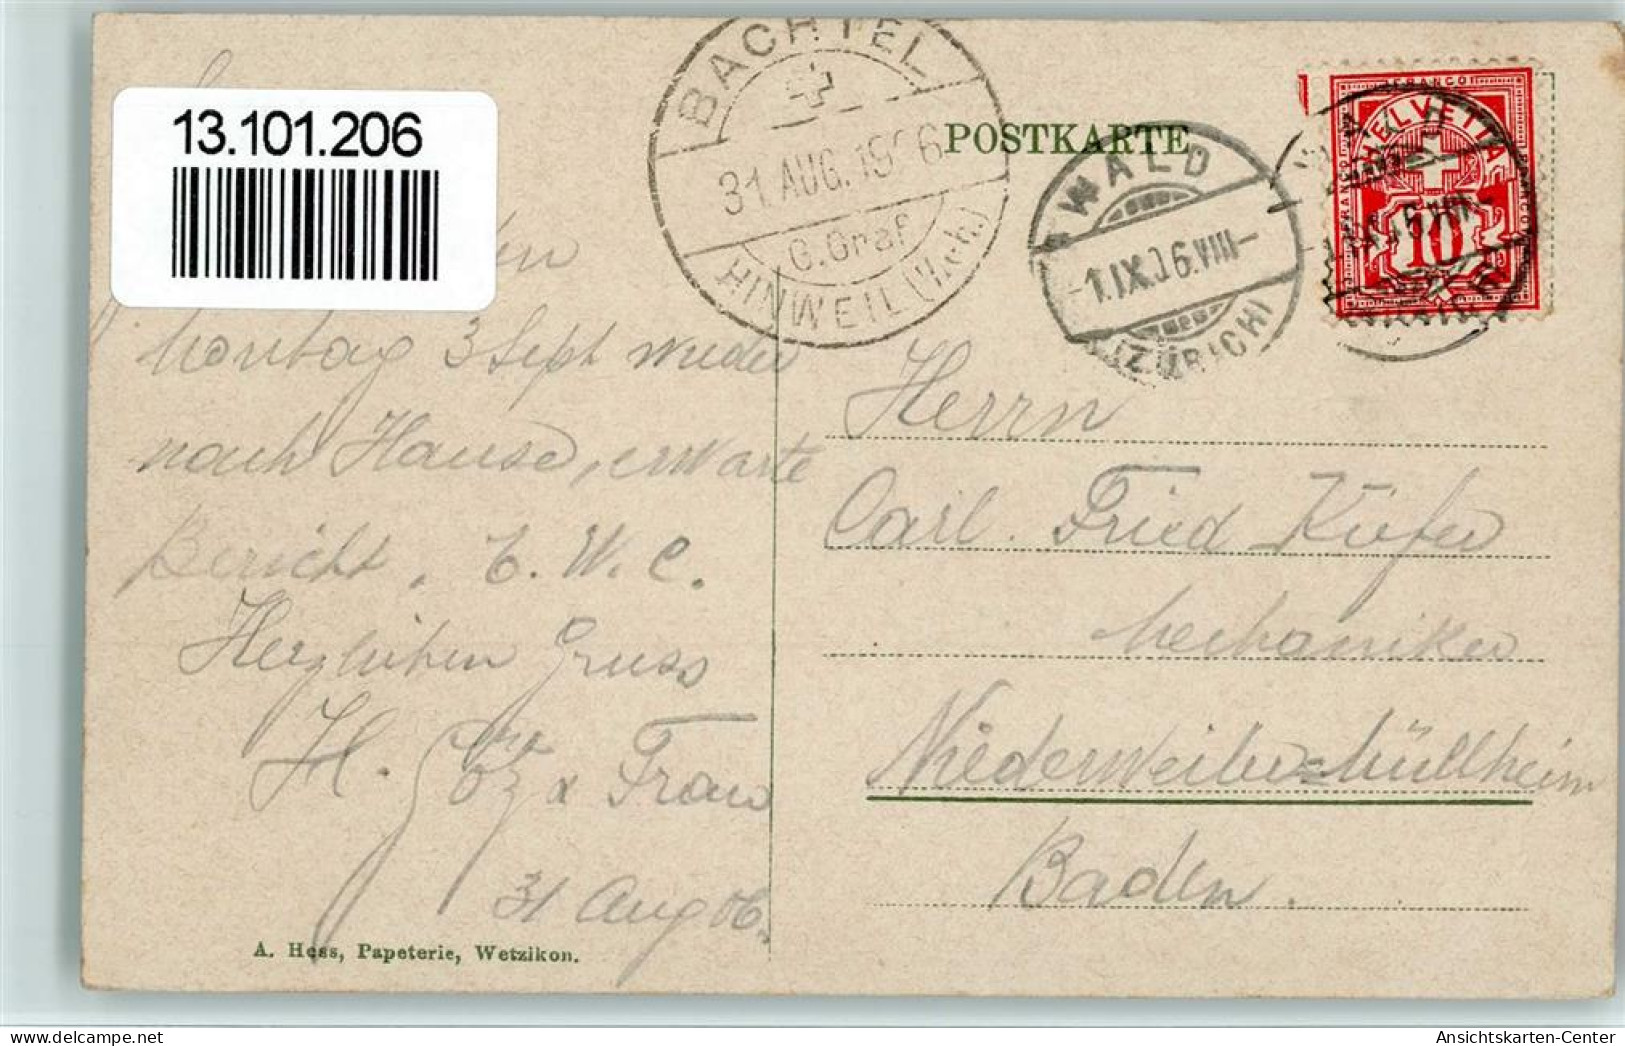 13.101.206
BACHTEL
31. AUG. 1906
G. Graf
HINWEIL (Zch.)
POSTKARTE
WALD
-1.IX.06.VIII-
(ZÜRICH)
FRANCO
HELVETIA
10
Montag 3 Sept wieder
nach Hause, erwarte
Bericht. E. W. C.
Herzlichen Gruss
H. Götz & Frau
31 Aug 06.
A. Hess, Papeterie, Wetzikon.
Herrn
Carl. Fried Kiefer
Mechaniker
Niederweiler=Müllheim
Baden.
delcampe.net
Ansichtskarten-Center